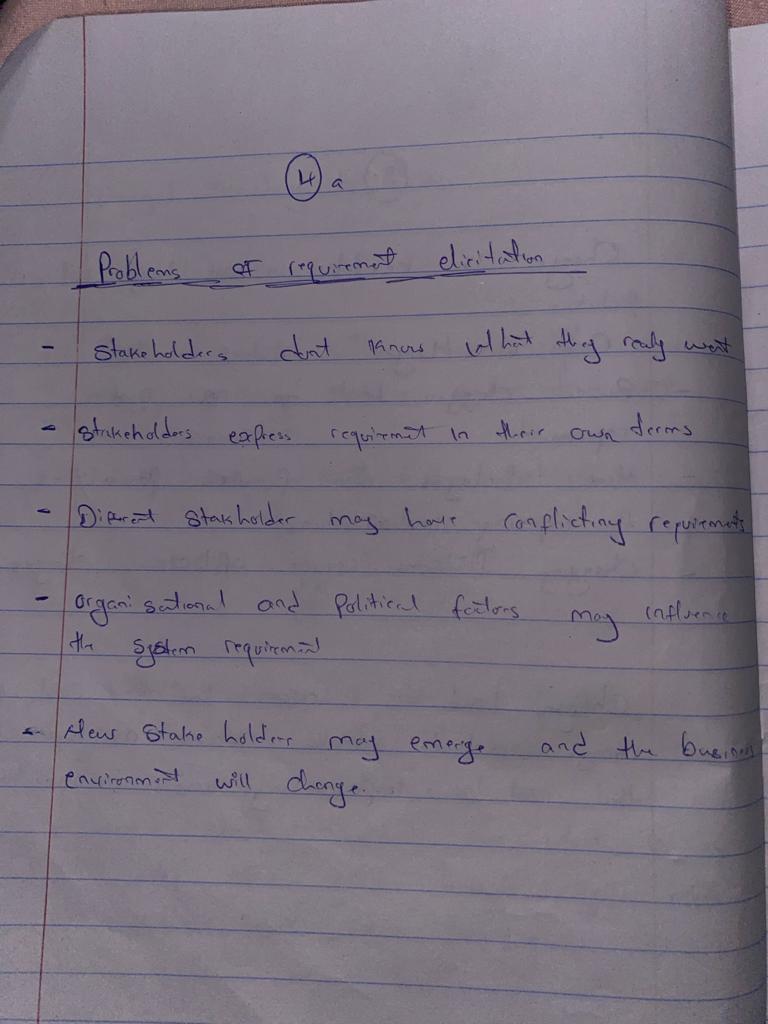 4 a
Problems of requirement elicitation
- Stakeholders dont know what they realy want
- Stakeholders express requirement in their own terms
- Diferent Stakholder may have conflicting requirements
- Organisational and political factors may influence
the system requirement
- New Stake holders may emerge and the business
environment will change.